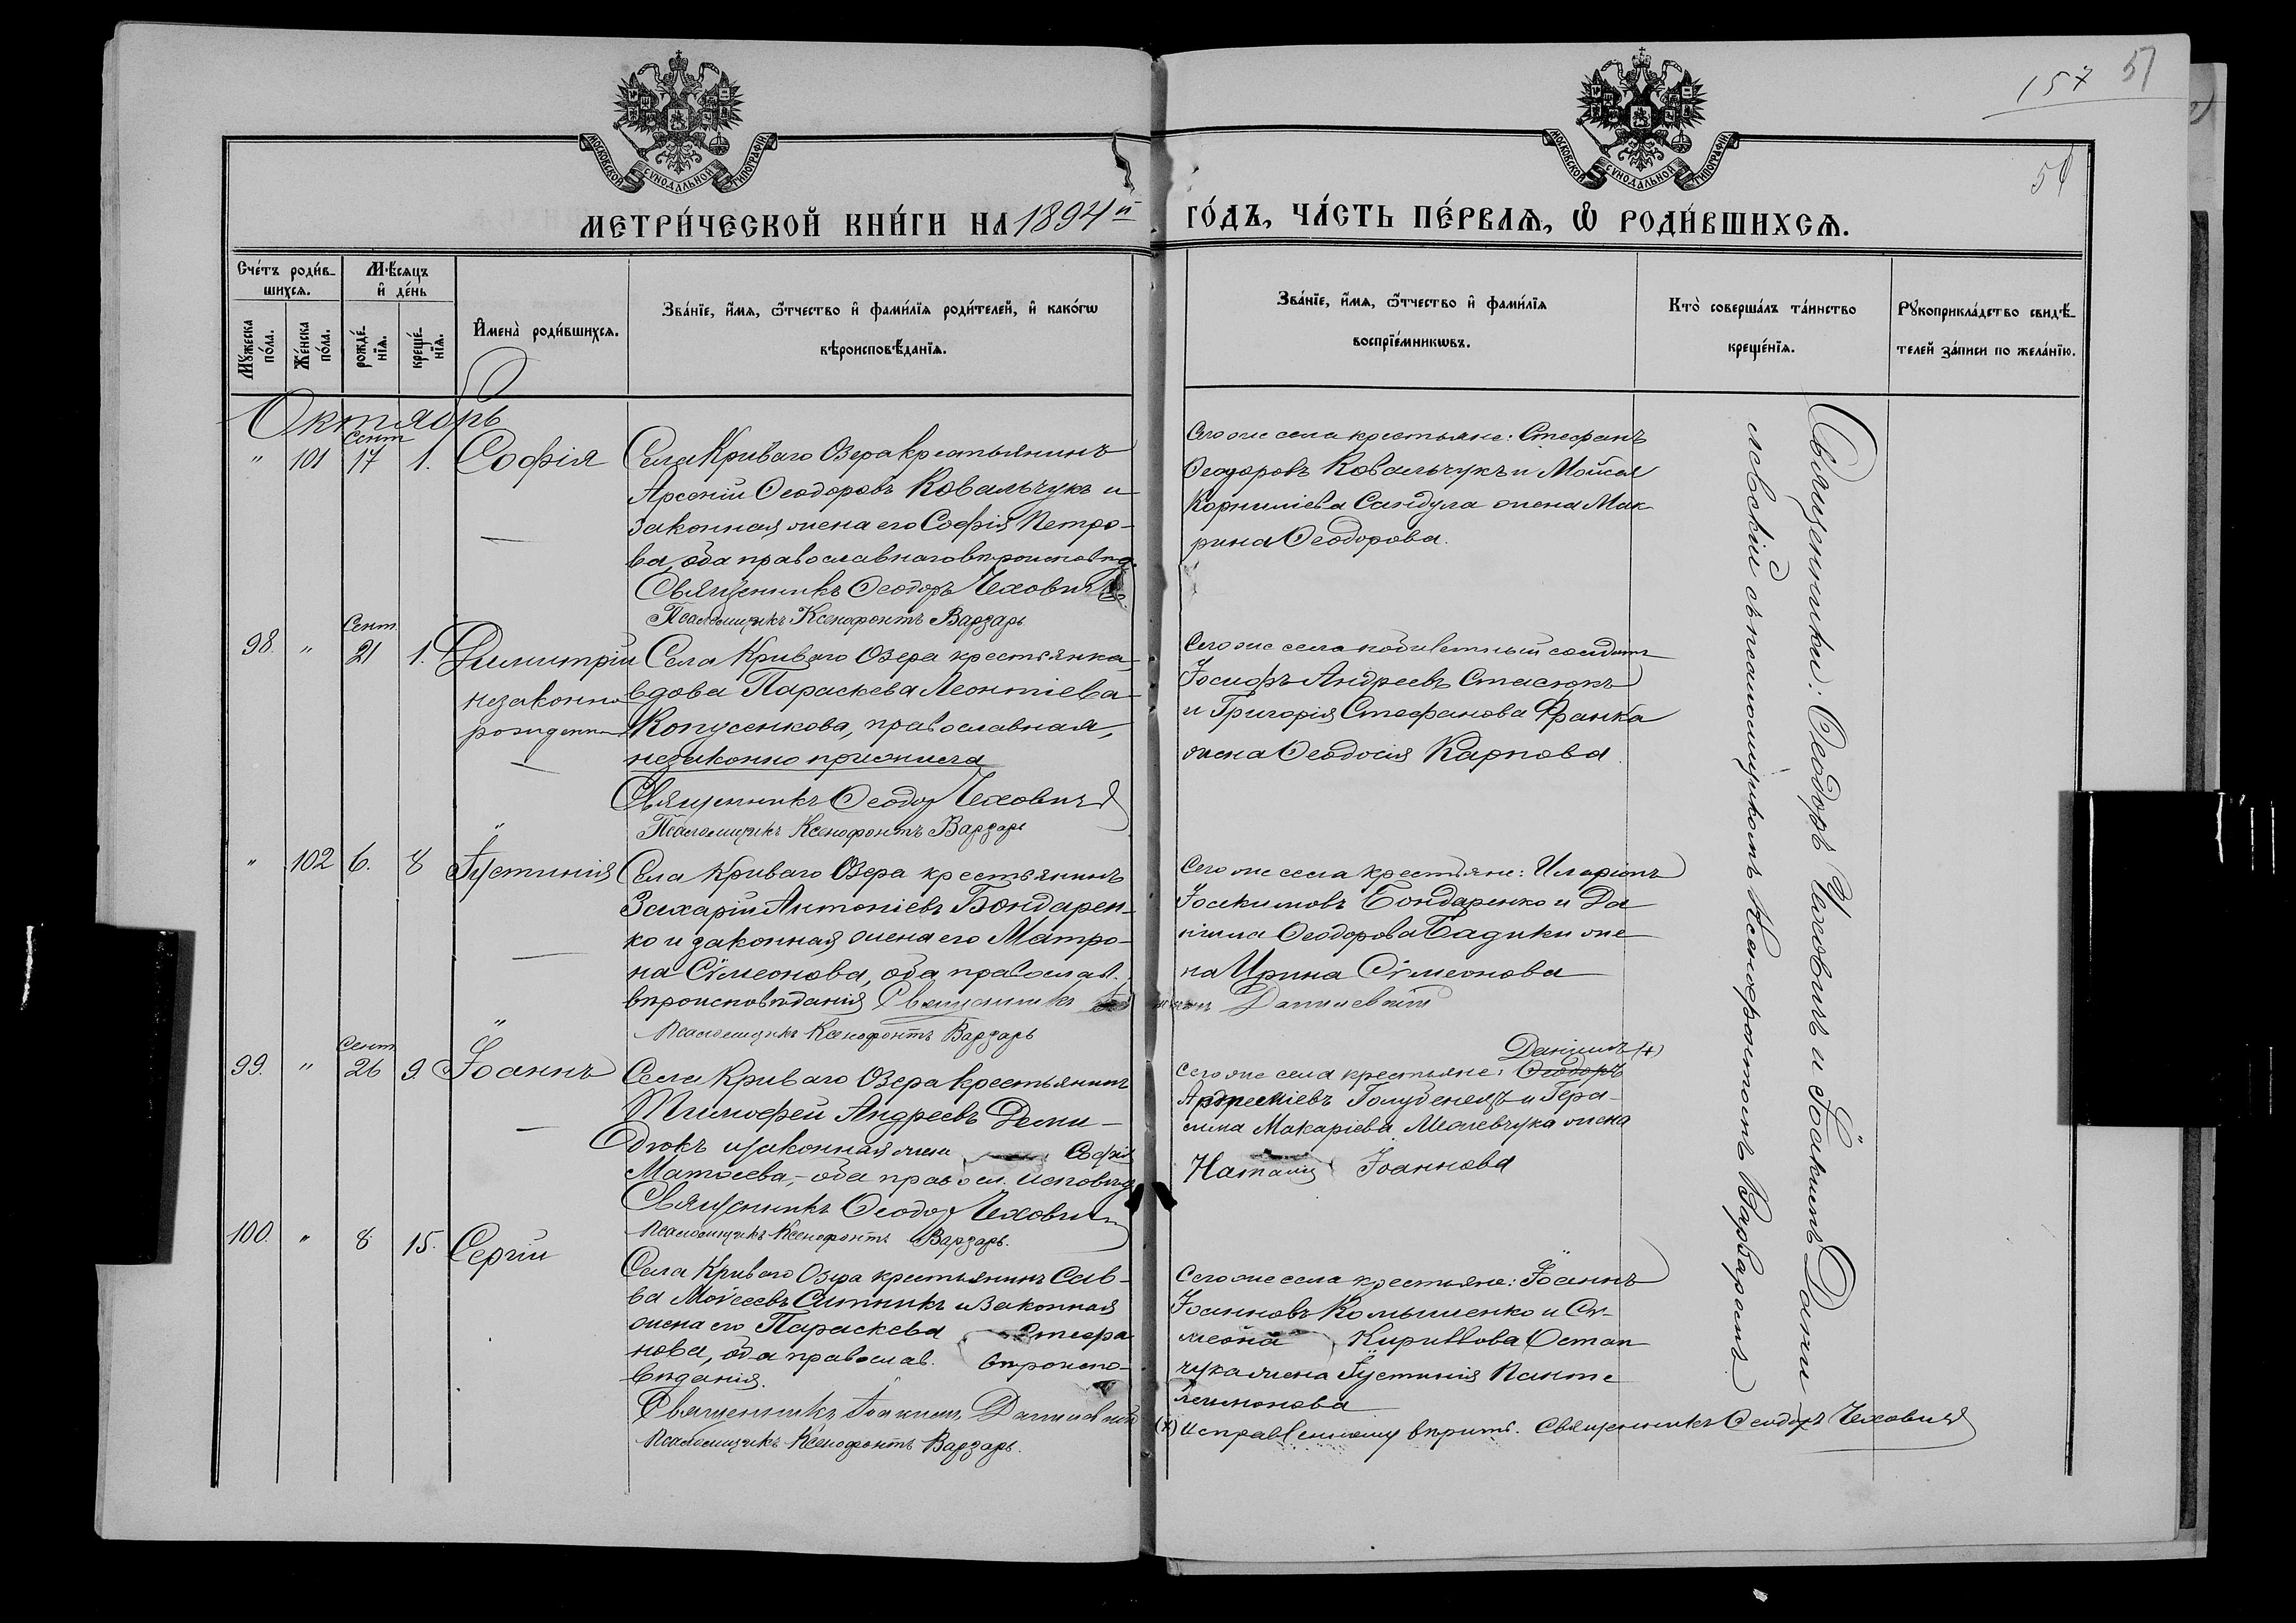 157 51
51
МОСКОВСКОЙ СѴНОДАЛЬНОЙ ТИПОГРАФІИ
МОСКОВСКОЙ СѴНОДАЛЬНОЙ ТИПОГРАФІИ
МЕТРИ́ЧЕСКОЙ КНИ́ГИ НА 1894й ГО́ДЪ, ЧА́СТЬ ПЕ́РВАѦ, Ѡ҆ РОДИ́ВШИХСѦ.
Сче́тъ роди́в-
шихсѧ.
Мѣ́сѧцъ
и҆ де́нь
Мꙋ́жеска
по́ла.
Же́нска
по́ла.
рожде́-
нїѧ.
креще́-
нїѧ.
И҆мена̀ роди́вшихсѧ.
Зва́нїе, и҆́мѧ, ѻ҆́тчество и҆ фами́лїѧ роди́телей, и҆ како́гѡ
вѣроисповѣ́данїѧ.
Зва́нїе, и҆́мѧ, ѻ҆́тчество и҆ фами́лїѧ
воспрїе́мникѡвъ.
Кто̀ соверша́лъ та́инство
креще́нїѧ.
Рꙋкоприкла́дство свидѣ́-
телей за́писи по жела́нїю.
Октябрь
" 101 Сент 17 1. Софія
Села Криваго Озера крестьянинъ
Арсеній Ѳеодоровъ Ковальчукъ и
законная жена его Софія Петро-
ва, оба православнаго вѣроисповѣд.
Священникъ Ѳеодоръ Чеховичъ
Псаломщикъ Ксенофонтъ Варзарь
Сего же села крестьяне: Стефанъ
Ѳеодоровъ Ковальчукъ и Мойсея
Корниліева Сандула жена Мак-
рина Ѳеодорова.
98. " Сент 21 1. Димитрій
незаконно
рожденный
Села Криваго Озера крестьянка,
вдова Параскева Леонтіева
Копусенкова, православная,
незаконно прижила
Священникъ Ѳеодоръ Чеховичъ
Псаломщикъ Ксенофонтъ Варзарь
Сего же села солдатъ
Іосифъ Андреевъ Стасюкъ
и Григорія Стефанова Франка
жена Ѳеодосія Карпова
" 102 6. 8 Іустинія
Села Криваго Озера крестьянинъ
Захарій Антоніевъ Бондарен-
ко и законная жена его Матро-
на Сѵмеонова, оба православ.
вѣроисповѣданія Священникъ Данилевскій
Псаломщикъ Ксенофонтъ Варзарь
Сего же села крестьяне: Иларіонъ
Іоакимовъ Бондаренко и Да-
ніила Ѳеодорова Бадики же-
на Ирина Сѵмеонова
99. " Сент 26 9. Іоаннъ
Села Криваго Озера крестьянинъ
Тимофей Андреевъ Деми-
дюкъ и законная жена Софія
Матѳеева, – оба правосл. исповѣд.
Священникъ Ѳеодоръ Чеховичъ
Псаломщикъ Ксенофонтъ Варзарь.
Даніилъ (+)
Сего же села крестьяне: Ѳеодоръ
Голубенецъ и Гера-
сима Макаріева жена
Наталія Іоаннова
100. " 8. 15. Сергій
Села Криваго Озера крестьянинъ Сав-
ва Моѵсеевъ Ситникъ и законная
жена его Параскева Стефа-
нова, оба православ. вѣроиспо-
вѣданія.
Священникъ Іоакимъ Данилевскій
Псаломщикъ Ксенофонтъ Варзарь.
Сего же села крестьяне: Іоаннъ
Іоанновъ Комышенко и Сѵ-
меона Кириллова Остап-
чука жена Іустинія Панте-
леимонова
(+) Исправленному вѣрить. Священникъ Ѳеодоръ Чеховичъ
Священники: Ѳеодоръ Чеховичъ и Іоакимъ Дани-
левскій съ псаломщикомъ Ксенофонтомъ Варзаремъ.